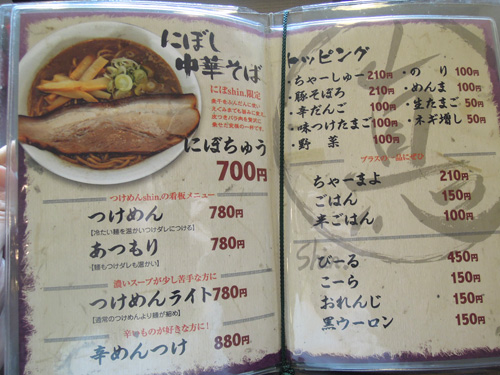 にぼし
中華そば
にぼshin.限定
にぼちゅう
700円
つけめんshin.の看板メニュー
つけめん 780円
【冷たい麺を温かいつけダレにつける】
あつもり 780円
【麺もつけダレも温かい】
濃いスープが少し苦手な方に
つけめんライト 780円
【通常のつけめんより麺が細め】
辛いものが好きな方に!
辛めんつけ 880円
トッピング
・ちゃーしゅー 210円
・豚そぼろ 210円
・辛だんご 100円
・味つけたまご 100円
・野菜 100円
・のり 100円
・めんま 100円
・生たまご 50円
・ネギ増し 50円
プラスの一品にぜひ
ちゃーまよ 210円
ごはん 150円
半ごはん 100円
びーる 450円
こーら 150円
おれんじ 150円
黒ウーロン 150円